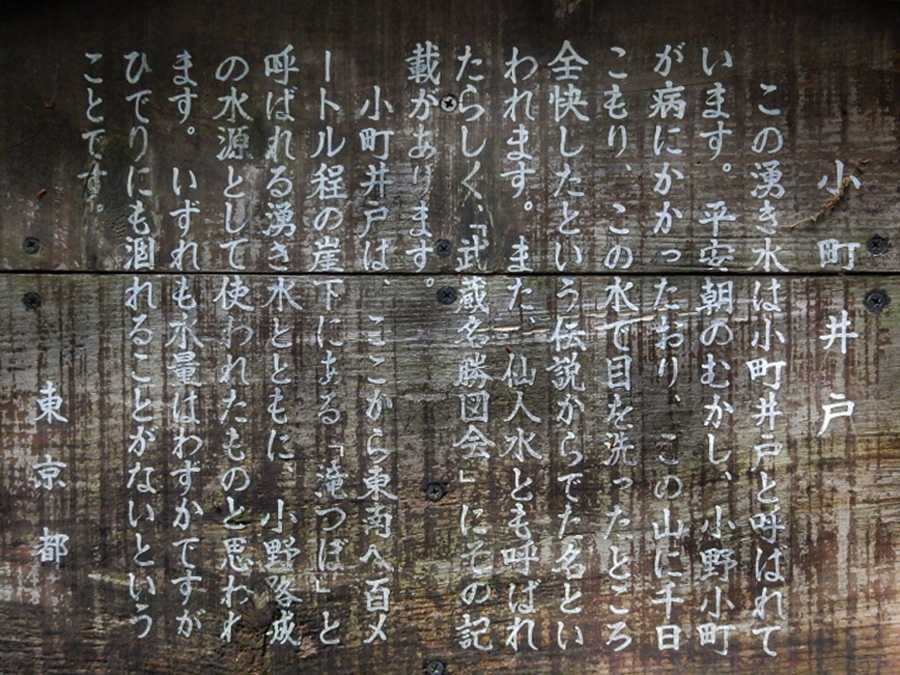 小町井戸
この湧き水は小町井戸と呼ばれて
います。平安朝のむかし、小野小町
が病にかかったおり、この山に千日
こもり、この水で目を洗ったところ
全快したという伝説からでた名とい
われます。また、仙人水とも呼ばれ
たらしく、「武蔵名勝図会」にその記
載があります。
小町井戸は、ここから東南へ百メ
ートル程の崖下にある「滝つぼ」と
呼ばれる湧き水とともに、小野路城
の水源として使われたものと思われ
ます。いずれも水量はわずかですが
ひでりにも涸れることがないという
ことです。
東京都